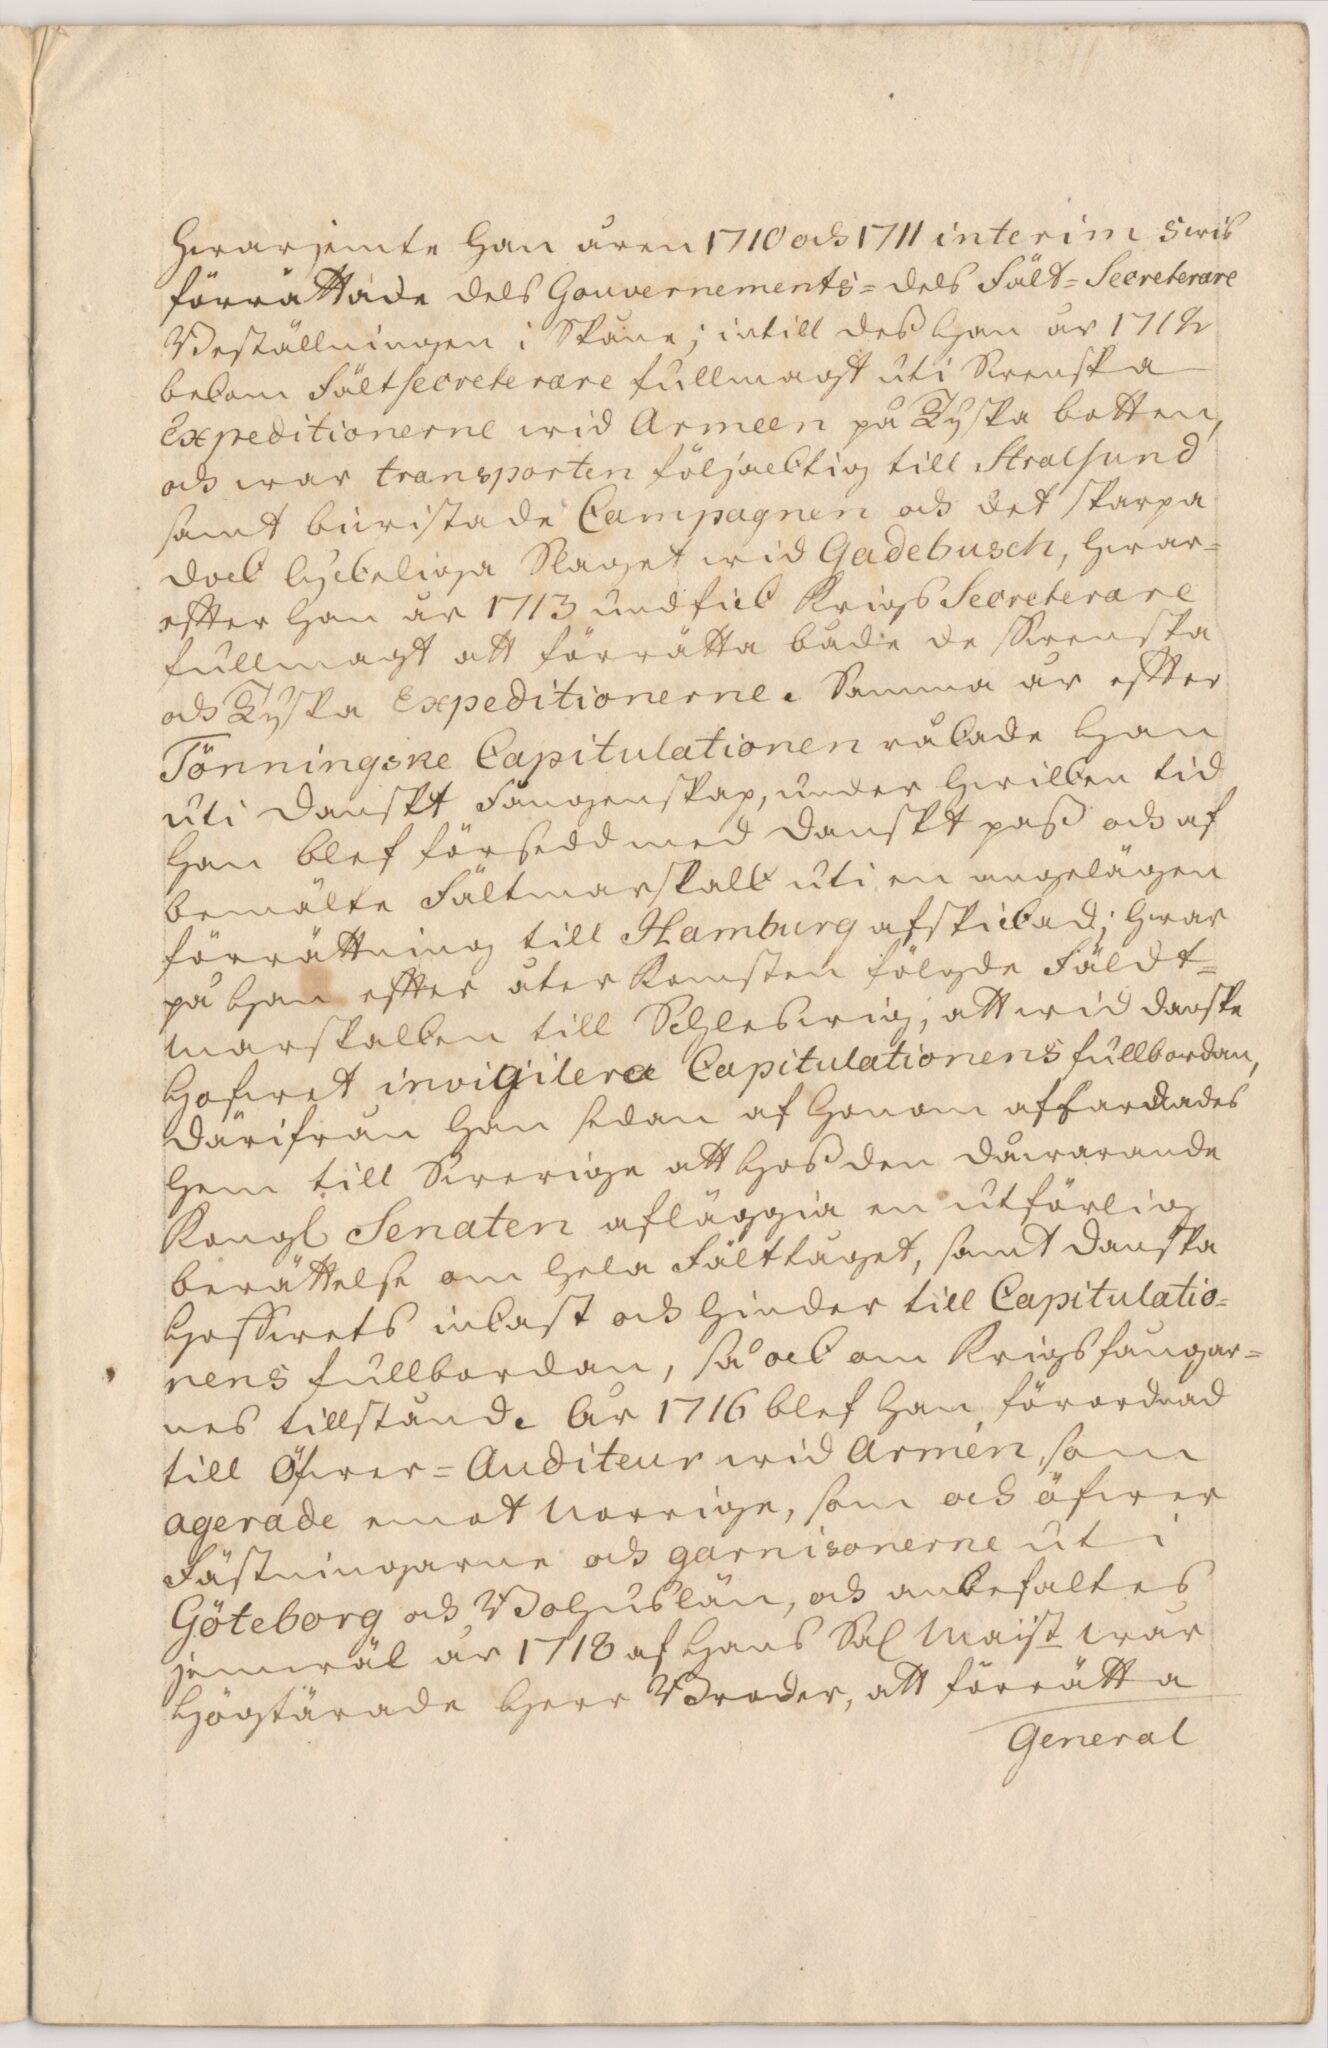 hwarjemte han åren 1710 och 1711 interims wis
förrättade dels Gouvernements= dels Fält=Secreterare
Beställningen i Skåne; intill deß han år 1712
bekom Fältsecreterare fullmagt uti Swenska
Expeditionerne wid Armeen på Tyska botten,
och war transporten följacktig till Stralsund
samt biwistade Campagnen och det skarpa
dock lyckeliga Slaget wid Gadebusch, hwar=
effter han år 1713 undfick Krigs Secreterare
fullmagt att förrätta både de Swenska
och Tyska Expeditionerne. Samma år effter
Tönningske Capitulationen råkade han
uti Danskt Fångenskap, under hwilken tid
han blef försedd med Danskt paß och af
bemälte Fältmarskalk uti en angelägen
förrättning till Hamburg afskickad; hwar
på han effter återkomsten fölgde Fäldt=
marskalken till Schleswig, att wid danske
Hofwet invigilera Capitulationens fullbordan,
därifrån han sedan af honom affärdades
hem till Swerige att hoß den dåwarande
Kongl Senaten afläggia en utförlig
berättelse om hela Fälttåget, samt Danska
Hoffwets inkast och hinder till Capitulatio=
nens fullbordan, så ock om Krigsfångar=
nes tillstånd. År 1716 blef han förordnad
till Öfwer=Auditeur wid Armén, som
agerade emot Norrige, som och öfwer
Fästningarne och garnisonerne uti
Göteborg och Bohuslän, och anbefaltes
jemwäl år 1718 af Hans Sal Maist wår
Högtärade Herr Broder, att förrätta
General